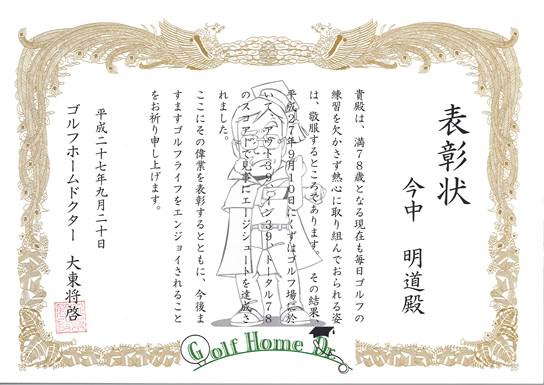 表彰状
今中 明道殿
貴殿は、満78歳となる現在も毎日ゴルフの
練習を欠かさず熱心に取り組んでおられる姿
は、敬服するところであります。 その結果、
平成27年9月10日にくずはゴルフ場に於
いて、アウト39、イン39、トータル78
のスコアーで見事にエージシュートを達成さ
れました。
ここにその偉業を表彰するとともに、今後ま
すますゴルフライフをエンジョイされること
をお祈り申し上げます。
平成二十七年九月二十日
ゴルフホームドクター 大東将啓
Golf Home Dr.